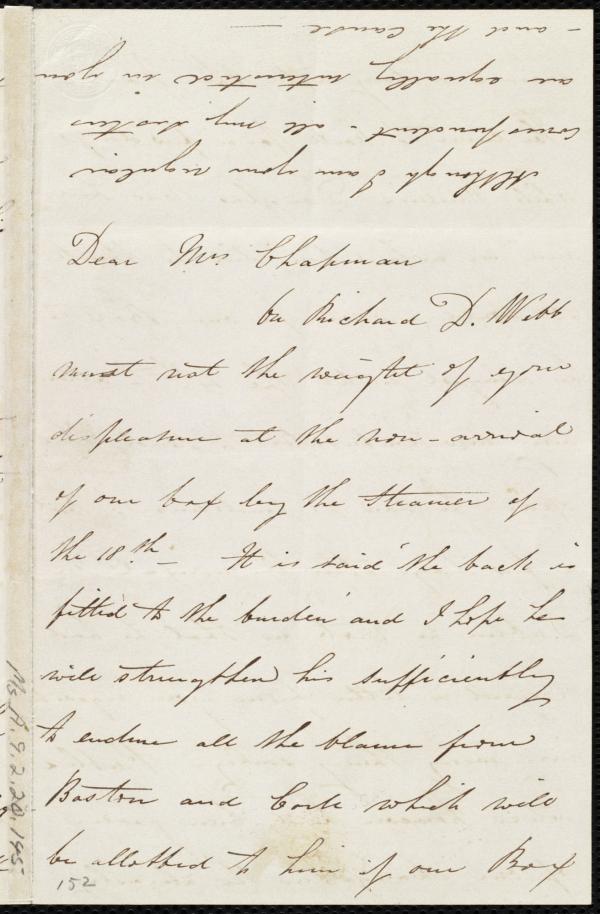 Although I am your regular
correspondent - all my sisters
are equally interested in you
- and the cause -
Dear Mrs Chapman
On Richard D. Webb
must rest the weight of your
displeasure at the non-arrival
of our box by the Steamer of
the 18th - It is said "the back is
fitted to the burden" and I hope he
will strengthen his sufficiently
to endure all the blame from
Boston and Cork which will
be allotted to him if our Box
Ms. A. 9. 2. 20. 145
152